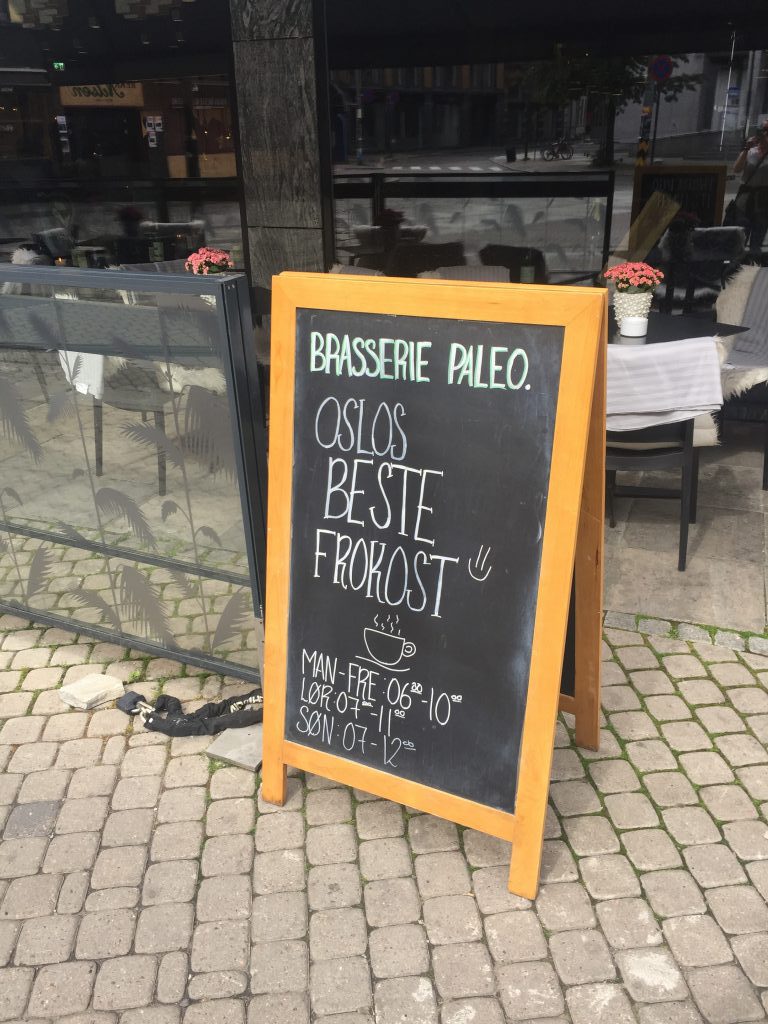 BRASSERIE PALEO.
OSLOS
BESTE
FROKOST
MAN-FRE: 06³⁰-10⁰⁰
LØR: 07⁰⁰-11⁰⁰
SØN: 07-12⁰⁰